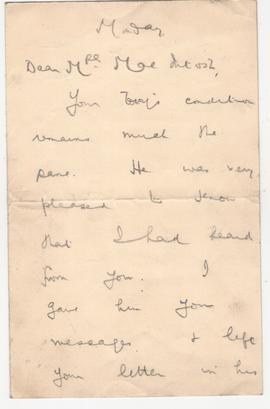 Monday
Dear Mrs MacIntosh,
Your boy's condition
remains much the
same. He was very
pleased to know
that I had heard
from you. I
gave him your
messages & left
your letter in his